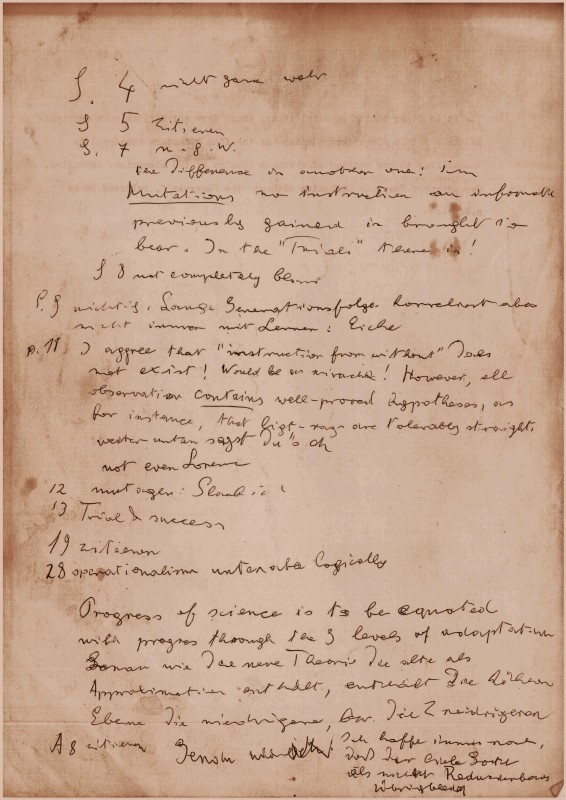 S. 4 nicht ganz wahr
S 5 zitieren
S. 7 u.s.w.
the difference in another one: In
Mutations no instruction or information
previously gained is brought to
bear. In the "Trials" there is!
S 8 not completely blind
S. 9 richtig. Lange Generationsfolge korreliert aber
nicht immer mit Lernen: Eiche
p. 11 I aggree that "instruction from without" does
not exist! Would be a miracle! However, all
observation contains well-proved hypotheses, as
for instance, that light-rays are tolerably straight.
weiter unten sagst Du's eh
not even Lorenz
12 mutagen:
13 Trial & success
19 zitieren
28 operationalism untenable logically
Progress of science is to be equated
with progress through the 3 levels of adaptation
Genau wie die neue Theorie die alte als
Approximation enthält, enthält die höhere
Ebene die niedrigere, bzw. die 2 niedrigeren
A 8 zitieren Ich hoffe immer noch,
daß der
als
übrigbleibt